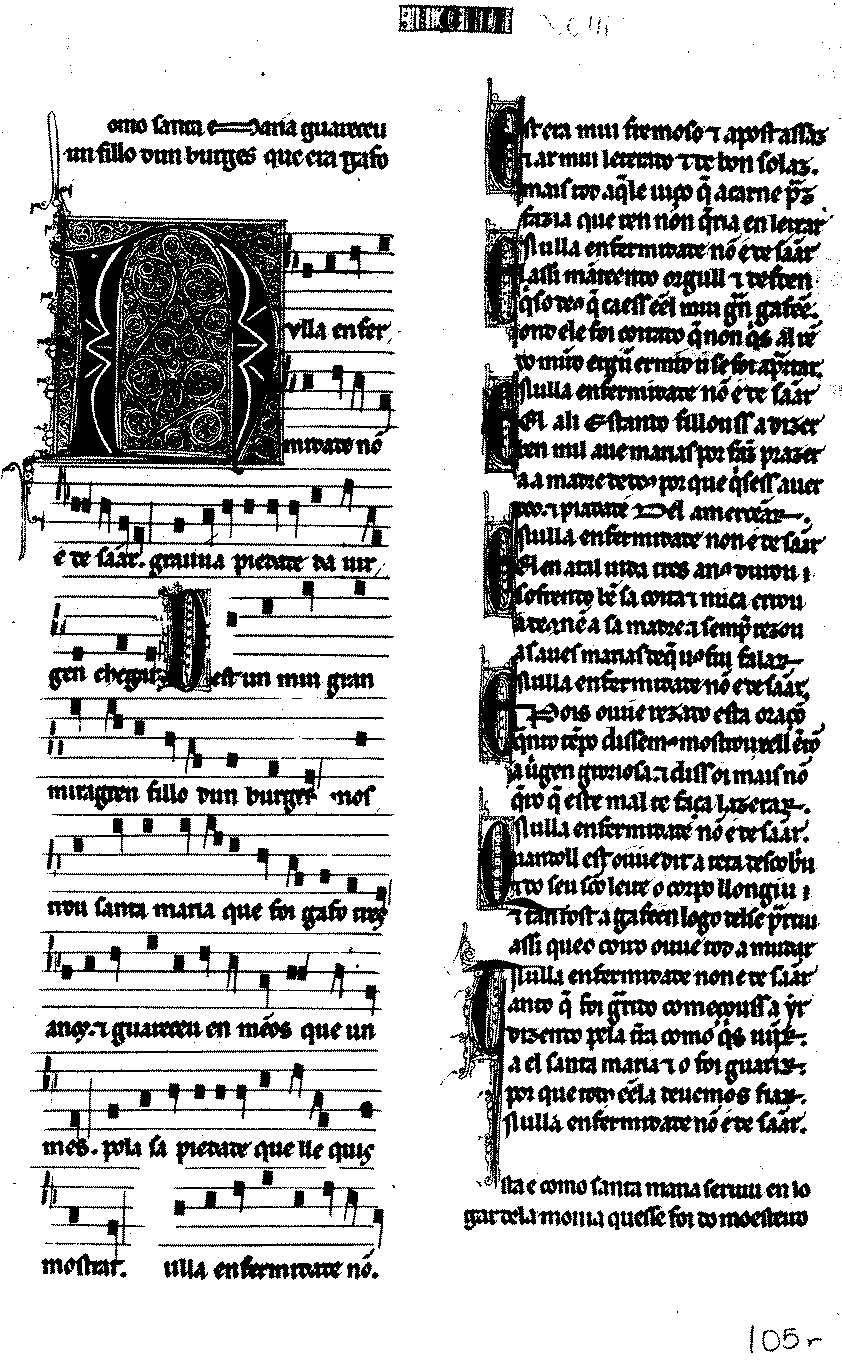 XCIII
omo santa Maria guareceu
un fillo dun burges que era gafo
Nulla enfer
midade nõ
é de sãar. gra un a piedade da uir
gen chegar. Dest un mui gran
miragren fillo dun burges mos
trou santa maria que foi gafo tres
anos. ⁊ guareceu en mẽos que un
mes. pola sa piedade que lle quis
mostrar. ulla enfermidade nõ.
Est era mui fremoso ⁊ apost assaz
⁊ ar mui leterado ⁊ de bon solaz.
mais tod aq̃le uiço q̃ a carne p̃z
fazia que ren nõn q̃ria en leixar
Nulla enfermidade nõ é de sãar
E assi mãtẽendo orgull ⁊ desden
q̃so deos q̃ caess ẽel mui grã gafeẽ.
ond ele foi coitado q̃ nõn q̃s al rẽ
do mũdo ergu ermida u se foi apartar.
Nulla enfermidade nõ é de sãar
E el ali estando fillouss a dizer
ben mil aue marias por faz̃ prazer
a a madre de deos por que q̃sess auer
doo. ⁊ piadade del a mercẽar.
Nulla enfermidade non é de sãar
El en atal uida tres anos durou
sofrendo bẽ sa coita ⁊ nũca errou
a deos nẽ a sa madre. ⁊ semp̃ rezou
as aues marias de q̃ uos fui falar
Nulla enfermidade nõ é de sãar,
E pois ouue rezado esta oraçõ
q̃nto tẽpo dissemos mostrousell ẽtõ
a uirgen groriosa. ⁊ dissoi mais nõ
q̃ro q̃ este mal te faça lazerar.
Nulla enfermidade nõ é de sãar.
Quandoll est ouue dit a teta descobriu
⁊ do seu sco leite o corpo ll ongiu
⁊ tan tost a gafeen logo delse p̃tiu
assi que o coiro ouue tod a mudar
Nulla enfermidade non é de sãar
Tanto q̃ foi guarido começouss a yr
dizendo pela terra como q̃s uijr
a el santa maria ⁊ o foi guarir.
por que todos ẽela deuemos fiar.
Nulla enfermidade nõ é de sãar.
Esta e como santa maria seruiu en lo
gar dela monia que sse foi do moesteiro
105r